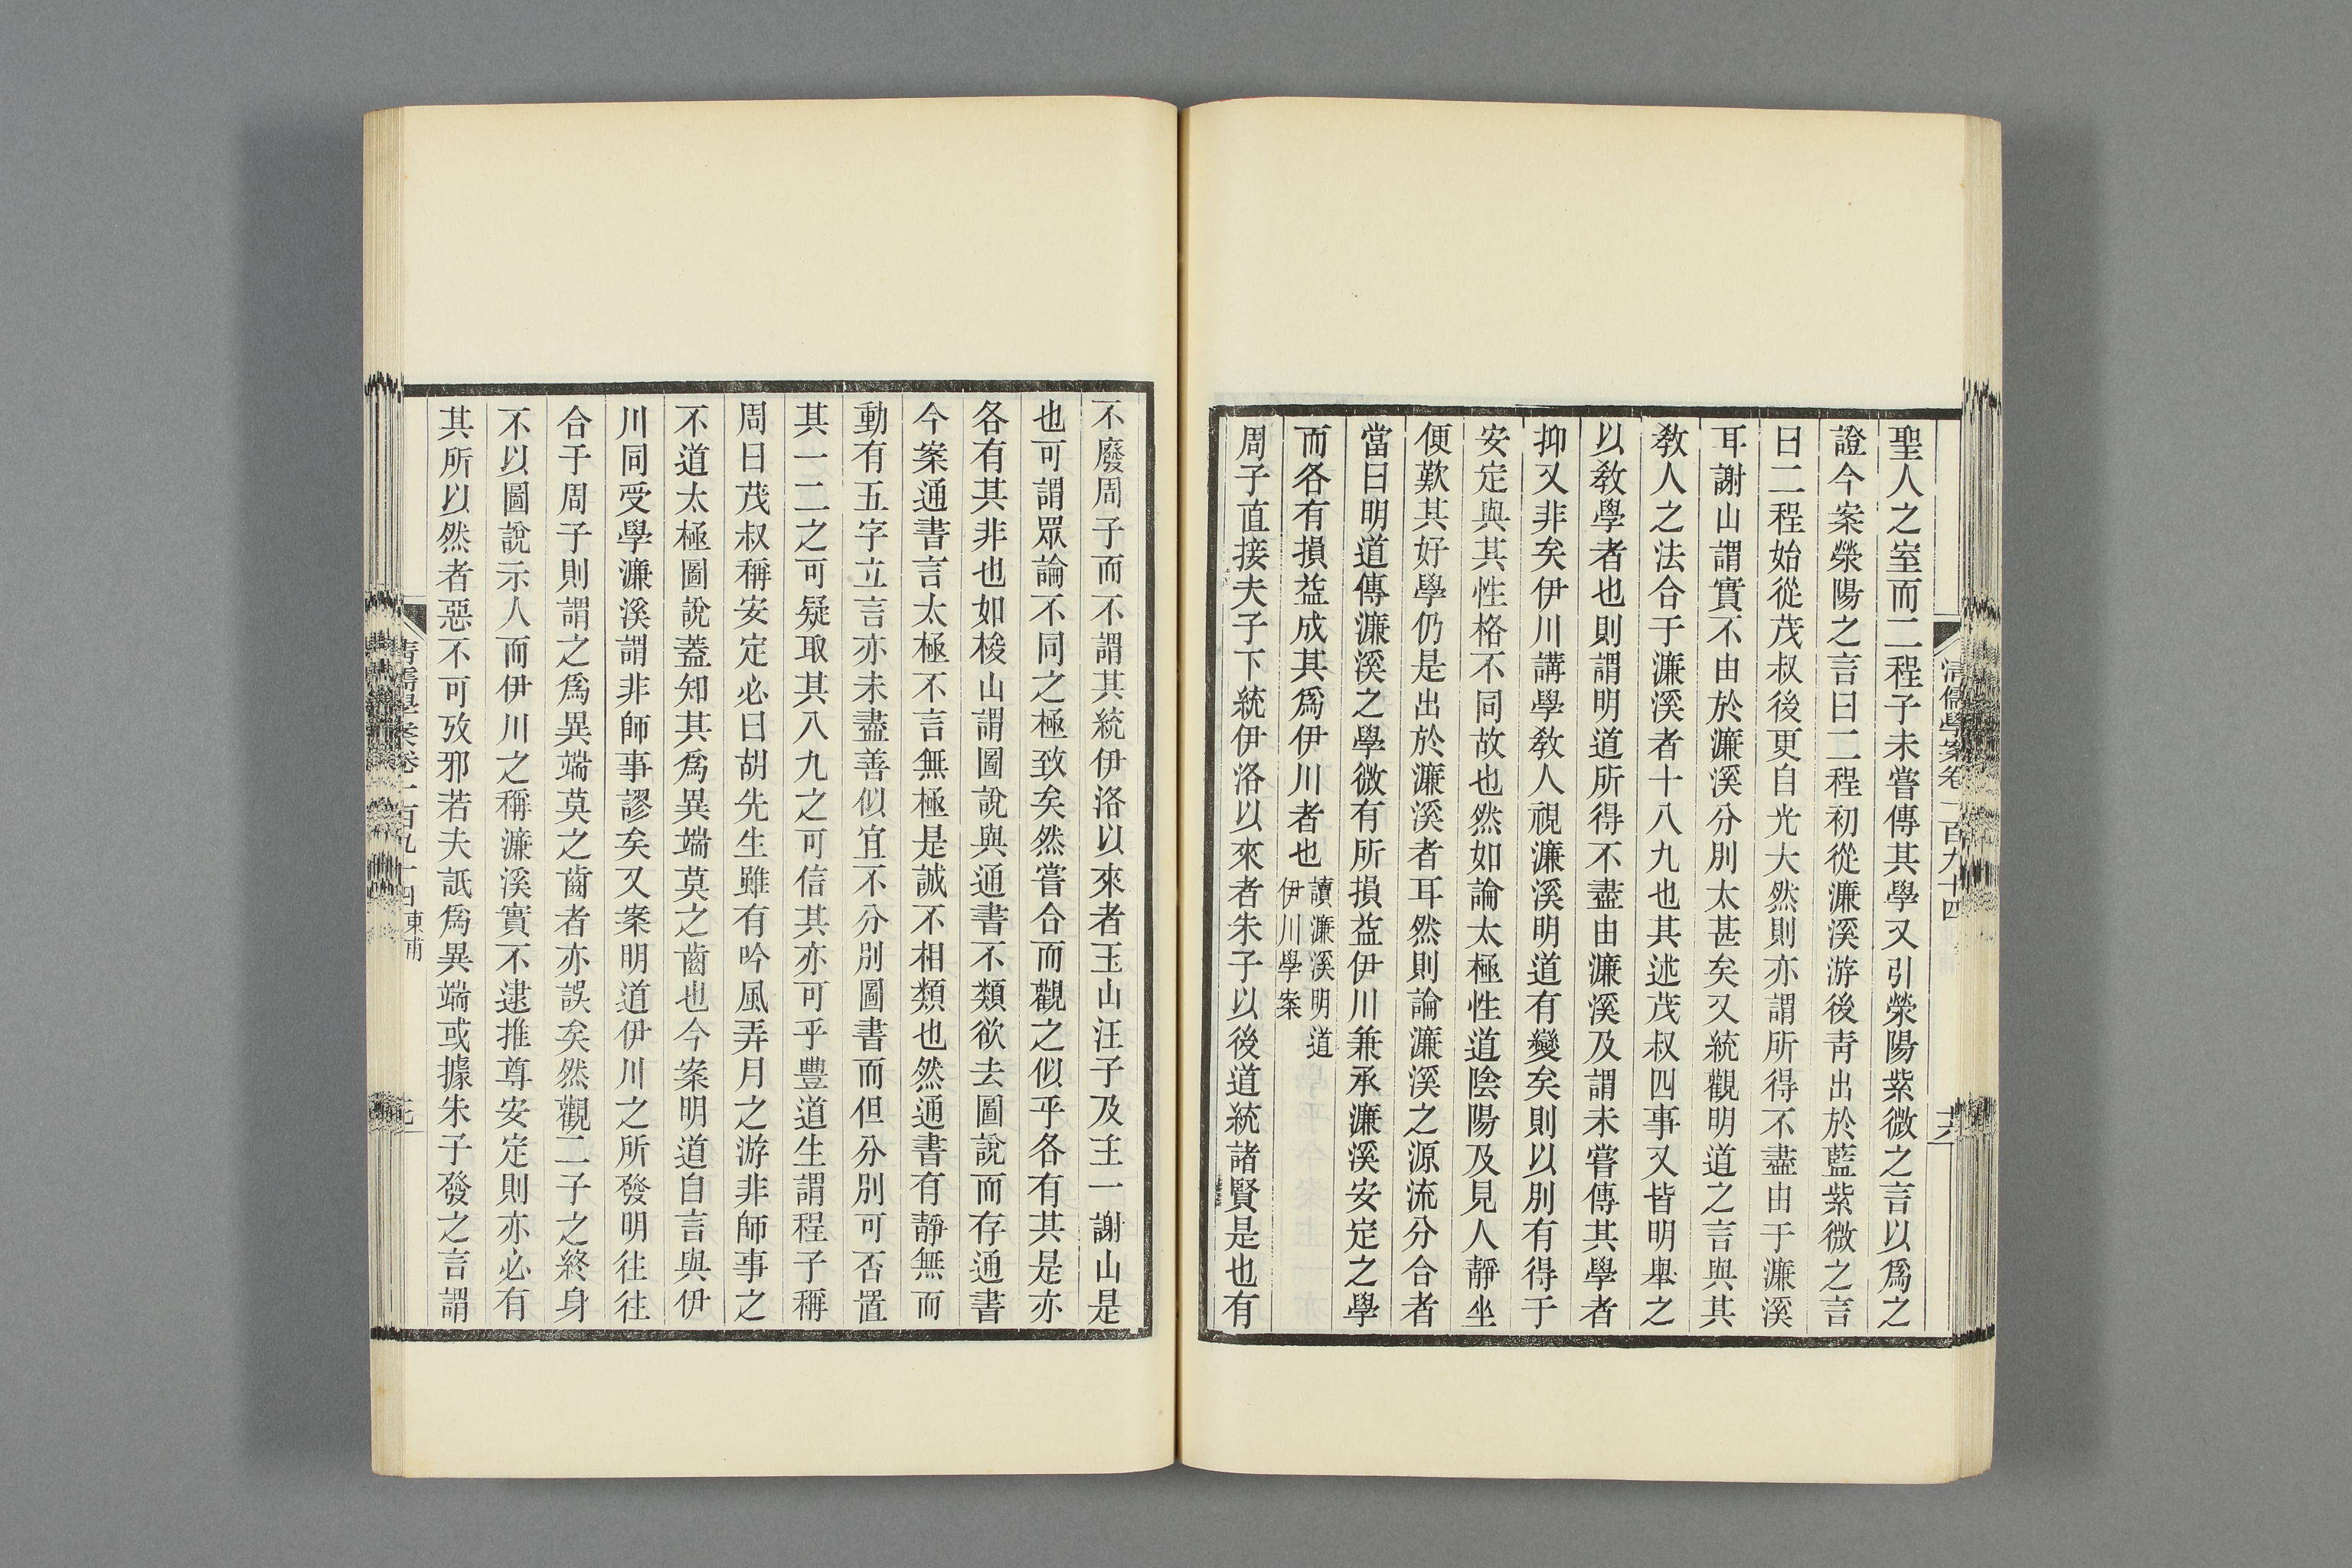 清儒學案卷一百九十四
六
聖人之室而二程子未嘗傳其學又引滎陽紫微之言以爲之
證今案滎陽之言曰二程初從濂溪游後靑出於藍紫微之言
曰二程始從茂叔後更自光大然則亦謂所得不盡由于濂溪
耳謝山謂實不由於濂溪分別太甚矣又統觀明道之言與其
敎人之法合于濂溪者十八九也其述茂叔四事又皆明舉之
以敎學者也則謂明道所得不盡由濂溪及謂未嘗傳其學者
抑又非矣伊川講學敎人視濂溪明道有變矣則以別有得于
安定與其性格不同故也然如論太極性道陰陽及見人靜坐
便歎其好學仍是出於濂溪者耳然則論濂溪之源流分合者
當曰明道傳濂溪之學微有所損益伊川兼承濂溪安定之學
而各有損益成其爲伊川者也讀濂溪明道
伊川學案
周子直接夫子下統伊洛以來者朱子以後道統諸賢是也有
不廢周子而不謂其統伊洛以來者玉山汪子及主一謝山是
也可謂眾論不同之極致矣然嘗合而觀之似乎各有其是亦
各有其非也如梭山謂圖說與通書不類欲去圖說而存通書
今案通書言太極不言無極是誠不相類也然通書有靜無而
動有五字立言亦未盡善似宜不分別圖書而但分別可否置
其一二之可疑取其八九之可信其亦可乎豐道生謂程子稱
周曰茂叔稱安定必曰胡先生雖有吟風弄月之游非師事之
不道太極圖說蓋知其爲異端莫之齒也今案明道自言與伊
川同受學濂溪謂非師事謬矣又案明道伊川之所發明往往
合于周子則謂之爲異端莫之齒者亦誤矣然觀二子之終身
不以圖說示人而伊川之稱濂溪實不逮推尊安定則亦必有
其所以然者惡不可攷邪若夫詆爲異端或據朱子發之言謂
清儒學案卷一百九十四 東甫